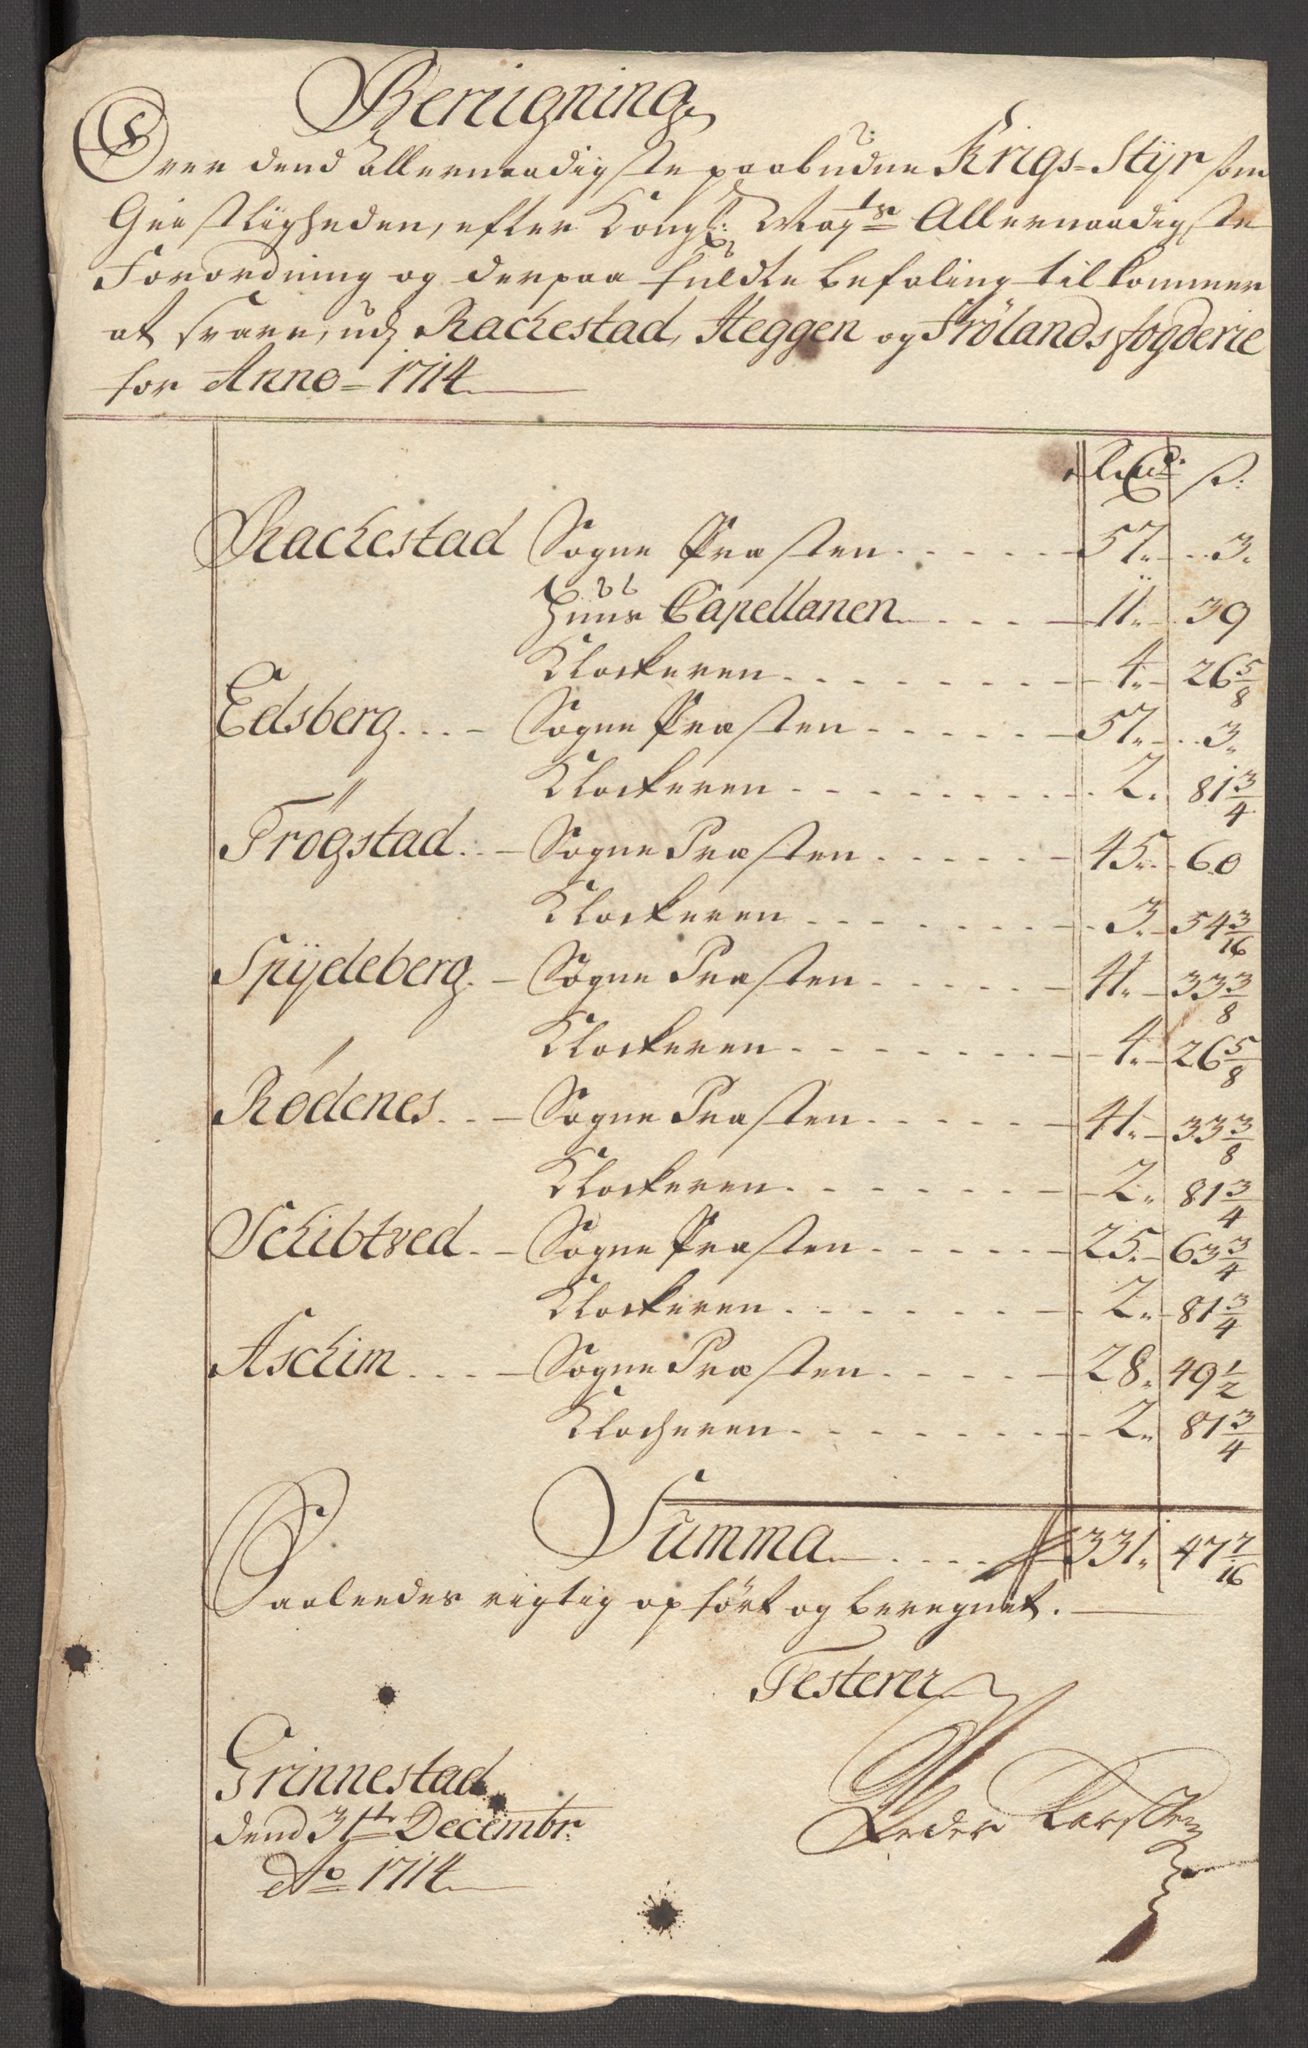 Beregning
Over dend Allernaadigste paabudne Krigs-Styr som
Geistligheden, efter Kongl: Mayts Allernaadigste
Forordning og derpaa fuldte befaling tilkommer
at svare, udj Rachestad, Heggen og Frölands fogderie
for Anno - 1714
Rdr. ß:
Rachestad Sogne Præsten 57. 3.
Huus Capellanen 11. 39
Klockeren 4. 26 5/8
Edsberg Sogne Præsten 57. 3.
Klockeren 2. 81 3/4
Trögstad Sogne Præsten 45. 60
Klockeren 3. 54 3/16
Spydeberg Sogne Præsten 41. 33 3/8
Klockeren 4. 26 5/8
Rødenes Sogne Præsten 41. 33 3/8
Klockeren 2. 81 3/4
Schibtved Sogne Præsten 25. 63 3/4
Klockeren 2. 81 3/4
Aschim Sogne Præsten 28. 49 1/2
Klocheren 2. 81 3/4
Summa 331. 47 7/16
Saaleedes rigtig opført og beregnet.
Testerer
Grinnestad
dend 31te Decembr.
Ao 1714
Peder Karsten